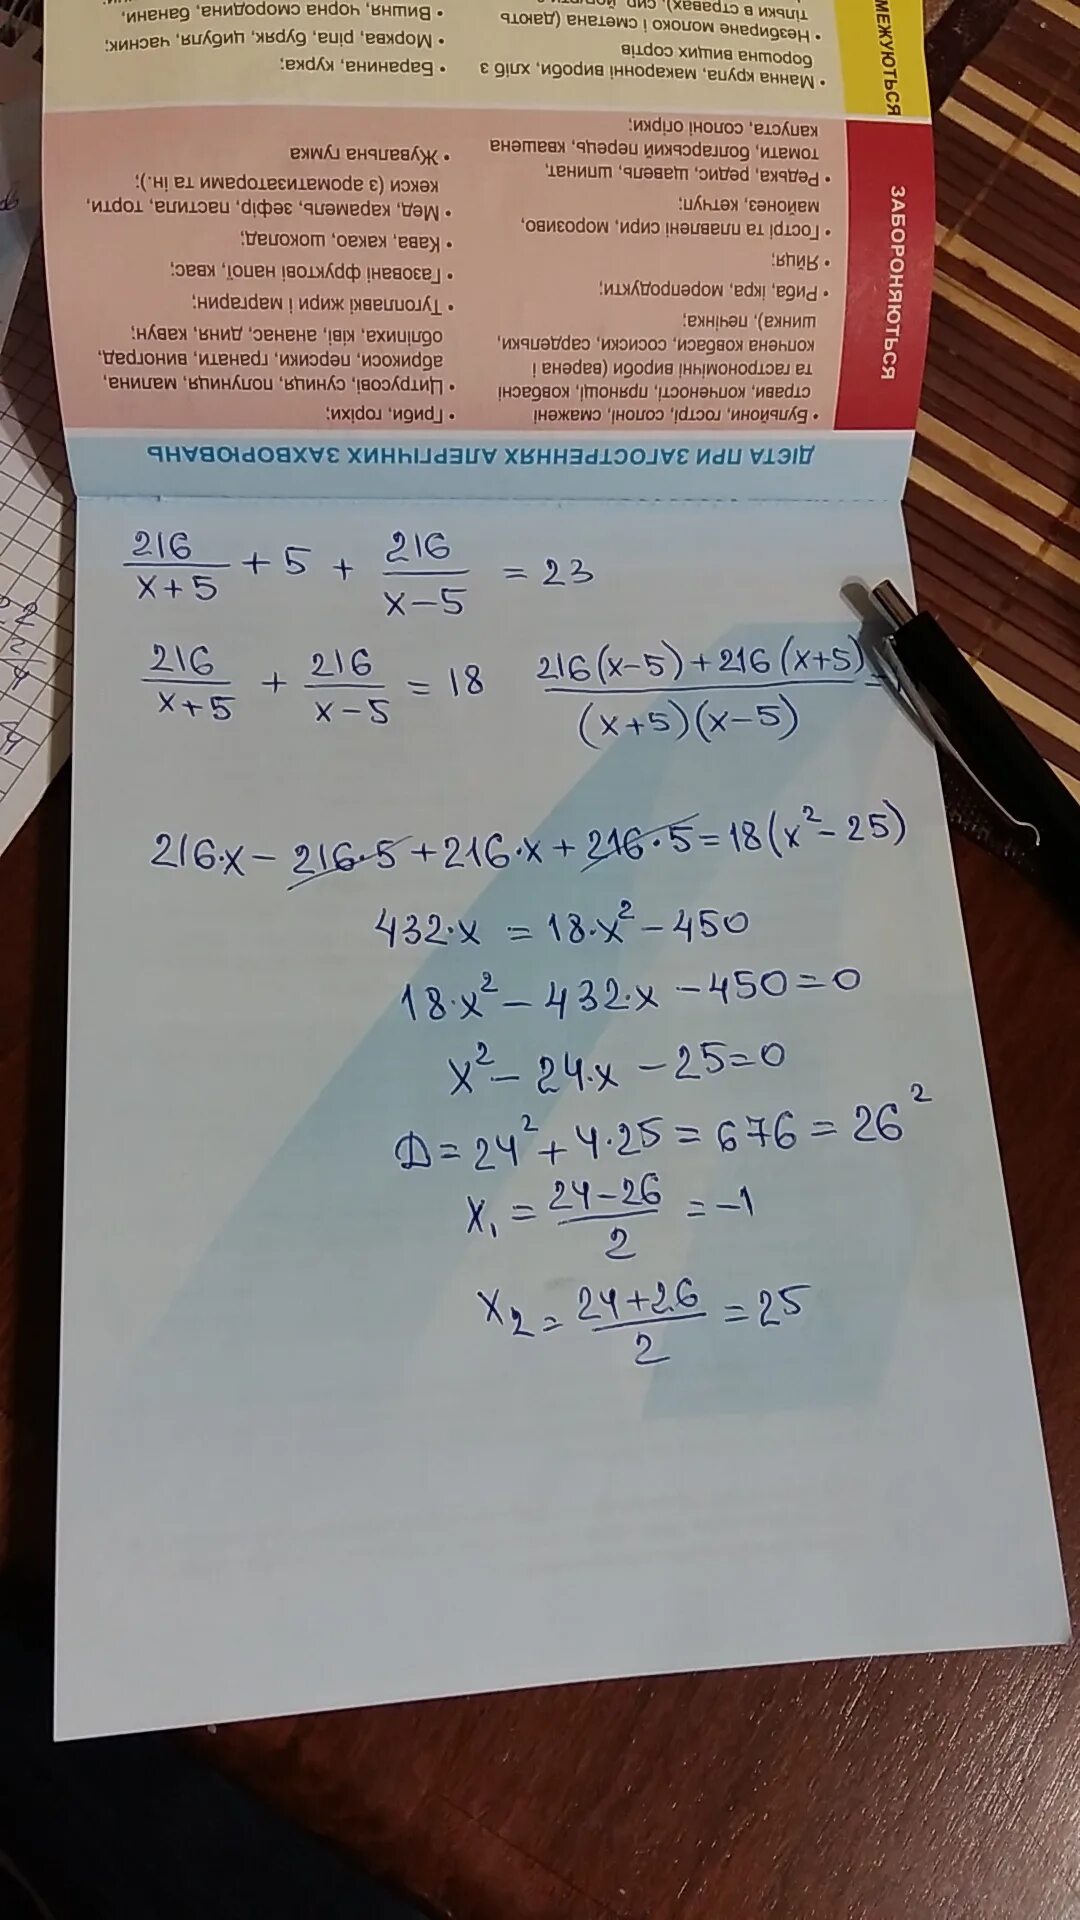 ДІЄТА ПРИ ЗАГОСТРЕННЯХ АЛЕРГІЧНИХ ЗАХВОРЮВАНЬ
ЗАБОРОНЯЮТЬСЯ
• Бульйони, гострі, солоні, смажені
страви, копченості, прянощі, ковбасні
та гастрономічні вироби (варена і
копчена ковбаси, сосиски, сардельки,
шинка), печінка;
• Риба, ікра, морепродукти;
• Яйця;
• Гострі та плавлені сири, морозиво,
майонез, кетчуп;
• Редька, редис, щавель, шпинат,
томати, болгарський перець, квашена
капуста, солоні огірки;
• Гриби, горіхи;
• Цитрусові, суниця, полуниця, малина,
абрикоси, персики, гранати, виноград,
обліпиха, ківі, ананас, диня, кавун;
• Тугоплавкі жири і маргарин;
• Газовані фруктові напої, квас;
• Кава, какао, шоколад;
• Мед, карамель, зефір, пастила, торти,
кекси (з ароматизаторами та ін.);
• Жувальна гумка
МЕЖУЮТЬСЯ
• Манна крупа, макаронні вироби, хліб з
борошна вищих сортів
• Незбиране молоко і сметана (дають
тільки в стравах), сир,
• Баранина, курка;
• Морква, ріпа, буряк, цибуля, часник;
• Вишня, чорна смородина, банани,
216/(x+5) + 5 + 216/(x-5) = 23
216/(x+5) + 216/(x-5) = 18
(216(x-5)+216(x+5))/((x+5)(x-5)) =
216·x - 216·5 + 216·x + 216·5 = 18(x² - 25)
432·x = 18·x² - 450
18·x² - 432·x - 450 = 0
x² - 24·x - 25 = 0
D = 24² + 4·25 = 676 = 26²
x₁ = (24-26)/2 = -1
x₂ = (24+26)/2 = 25